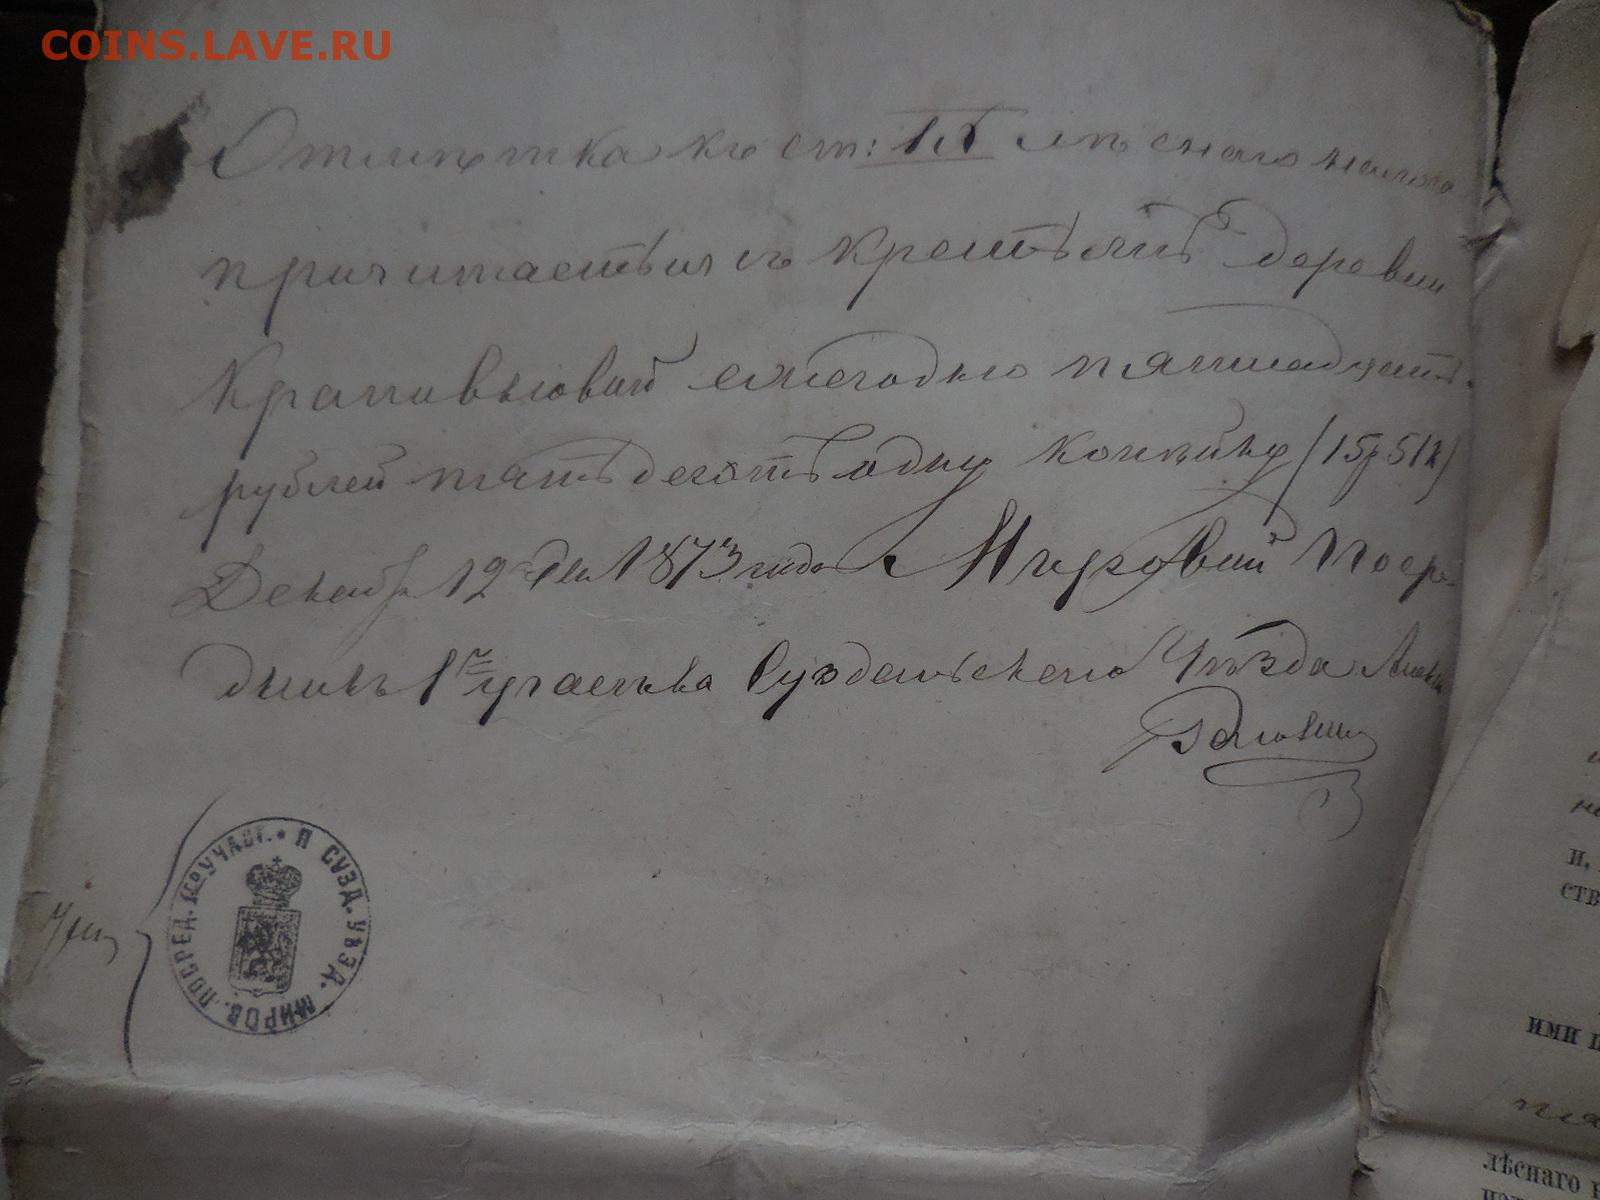 COINS.LAVE.RU
Отмѣтка къ ст: лѣснаго налога
причитается съ крестьянъ деревни
ежегодно пятнадцать
рублей пятьдесятъ одну копѣйку (15р 51к)
Декабр 12 дня 1873 года Мировый Посре-
дникъ 1го участка Суздальскаго Уѣзда
МИРОВ. ПОСРЕД. 1го УЧАСТ. • СУЗД. УѢЗД.
ими п
лѣснаго